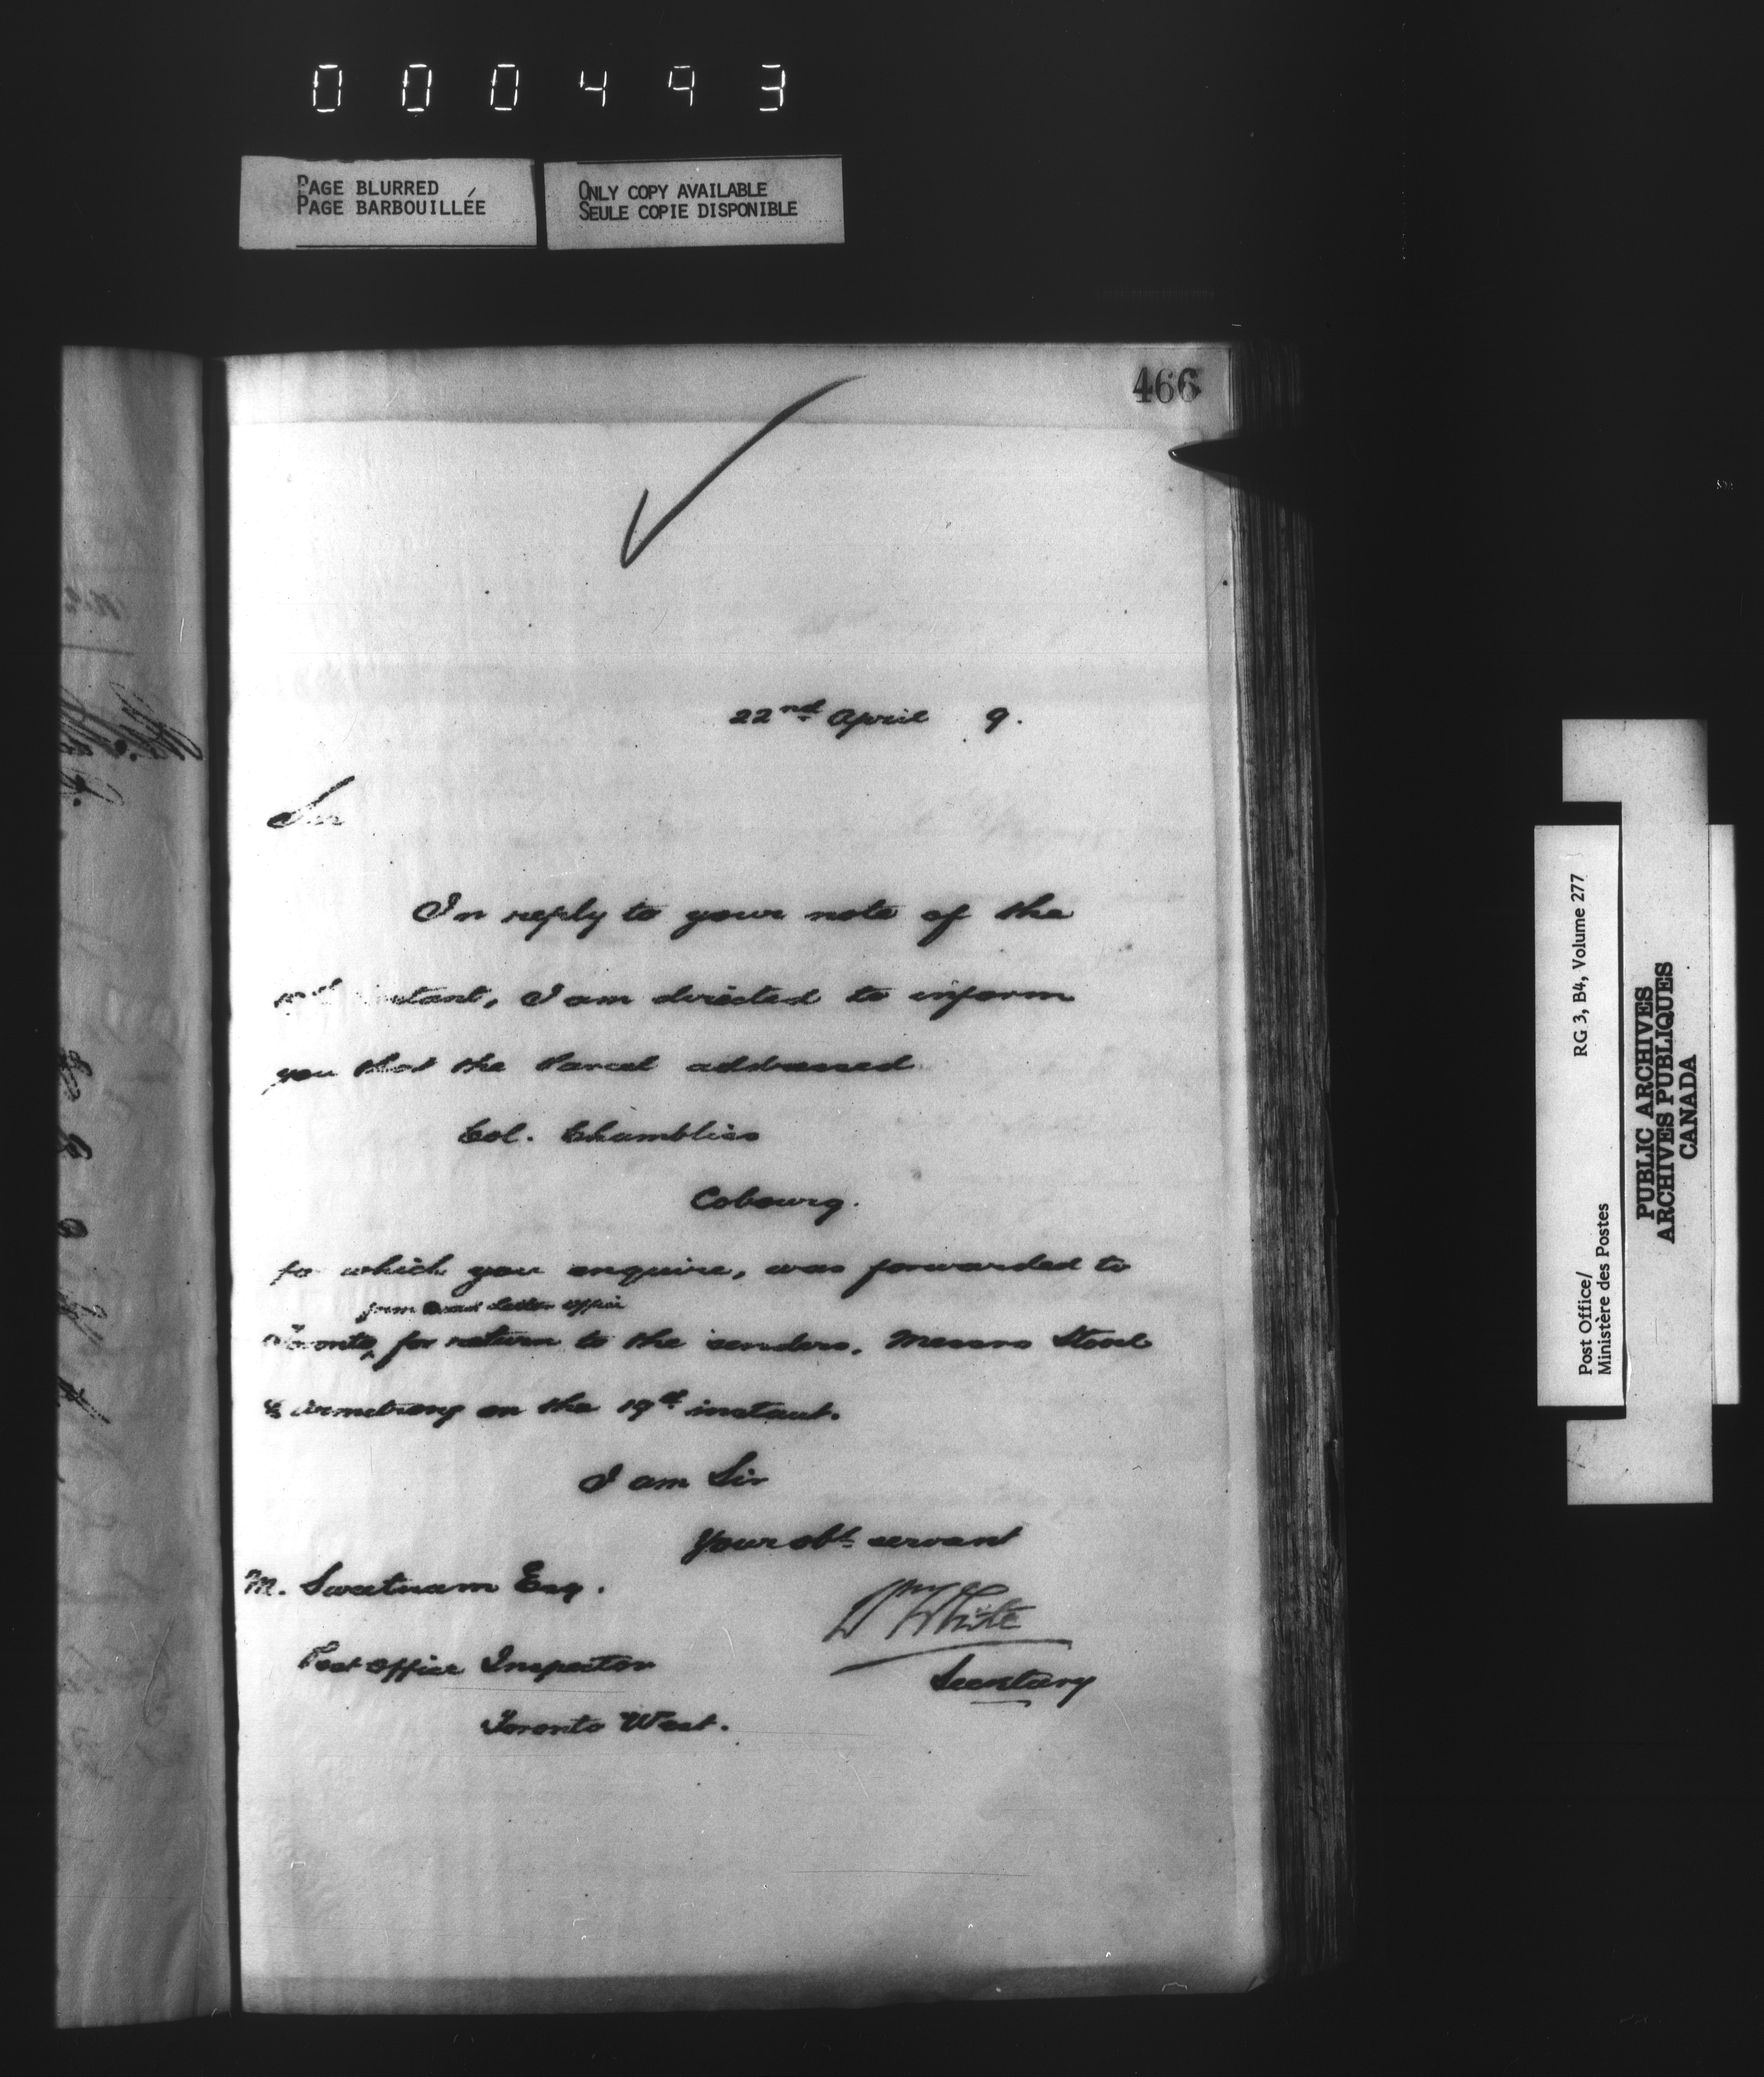 000493
PAGE BLURRED
PAGE BARBOUILLÉE
ONLY COPY AVAILABLE
SEULE COPIE DISPONIBLE
466
22nd April 9.
Sir
In reply to your note of the
instant, I am directed to inform
you that the Parcel addressed
Col. Chambliss
Cobourg.
for which you enquire, was forwarded to
from Dead Letter Office
Toronto, for return to the senders, Messrs
& Armstrong on the 19th instant.
I am Sir
Your obt servant
M. Sweetnam Esq.
Wm White
Post Office Inspector
Secretary
Toronto West.
Post Office/
Ministère des Postes
RG 3, B4, Volume 277
PUBLIC ARCHIVES
ARCHIVES PUBLIQUES
CANADA